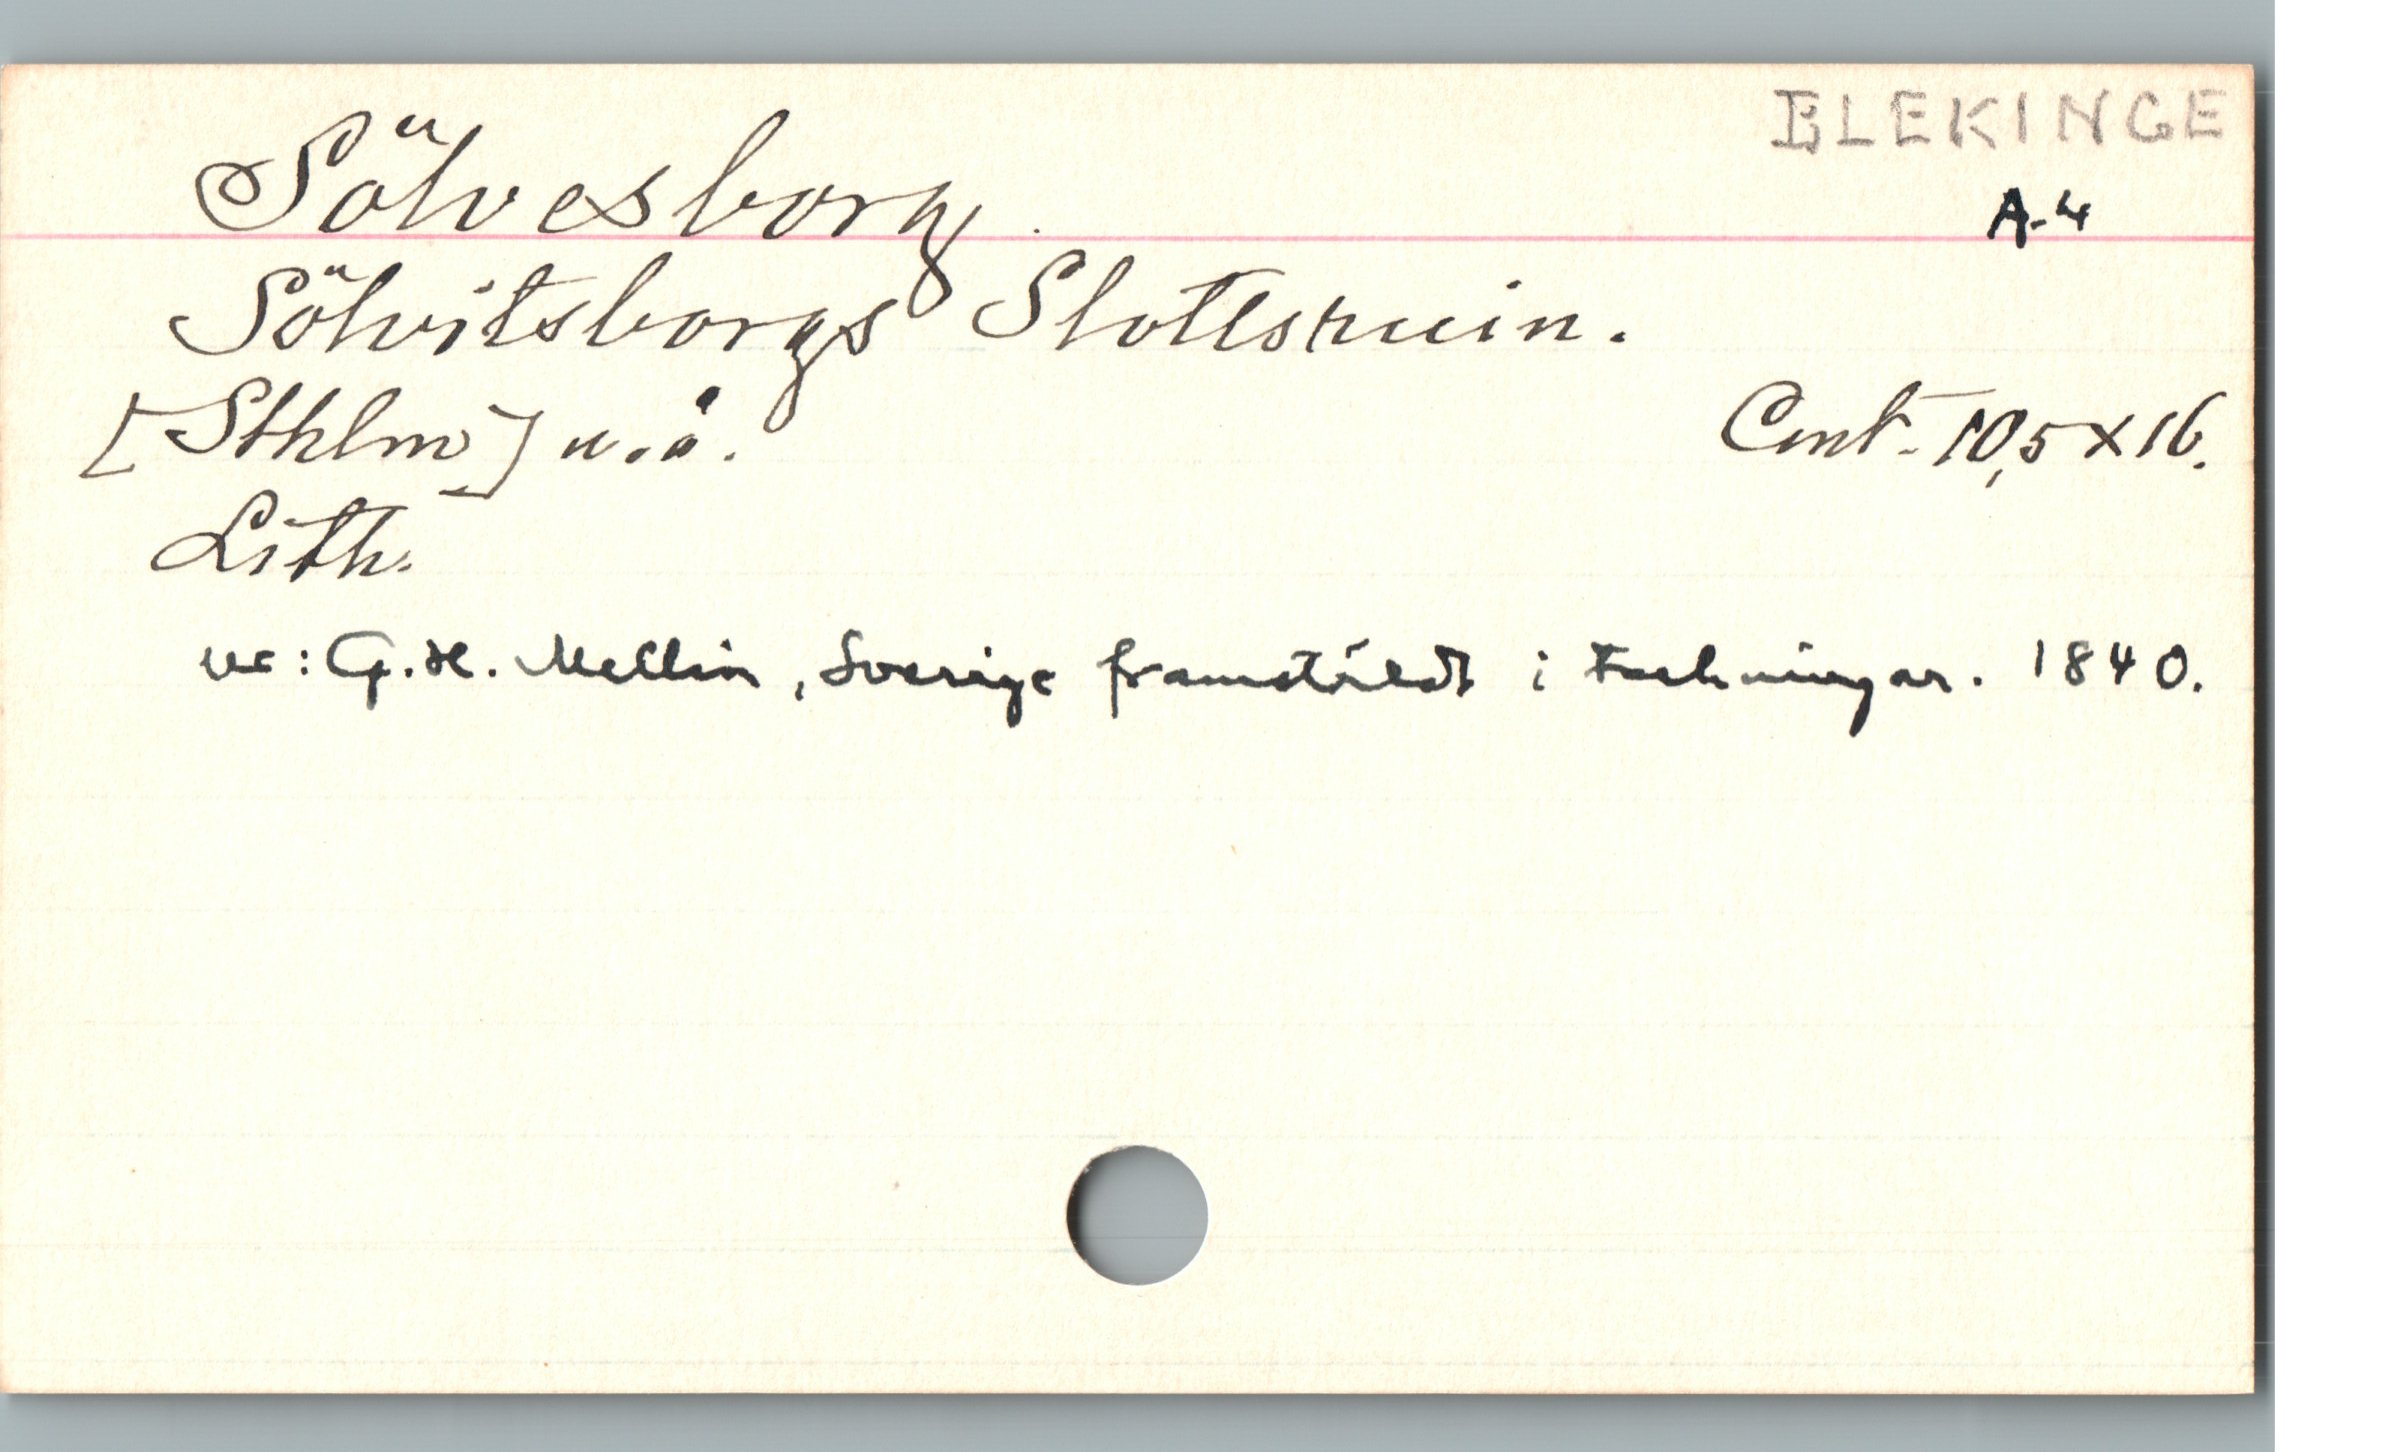 BLEKINGE
Sölvesborg.
A-4
Sölvitsborgs Slottsruin.
[Sthlm] u.å. Cent. 10,5 x 16.
Lith.
ur: G.H. Mellin, Sverige framställdt i teckningar. 1840.